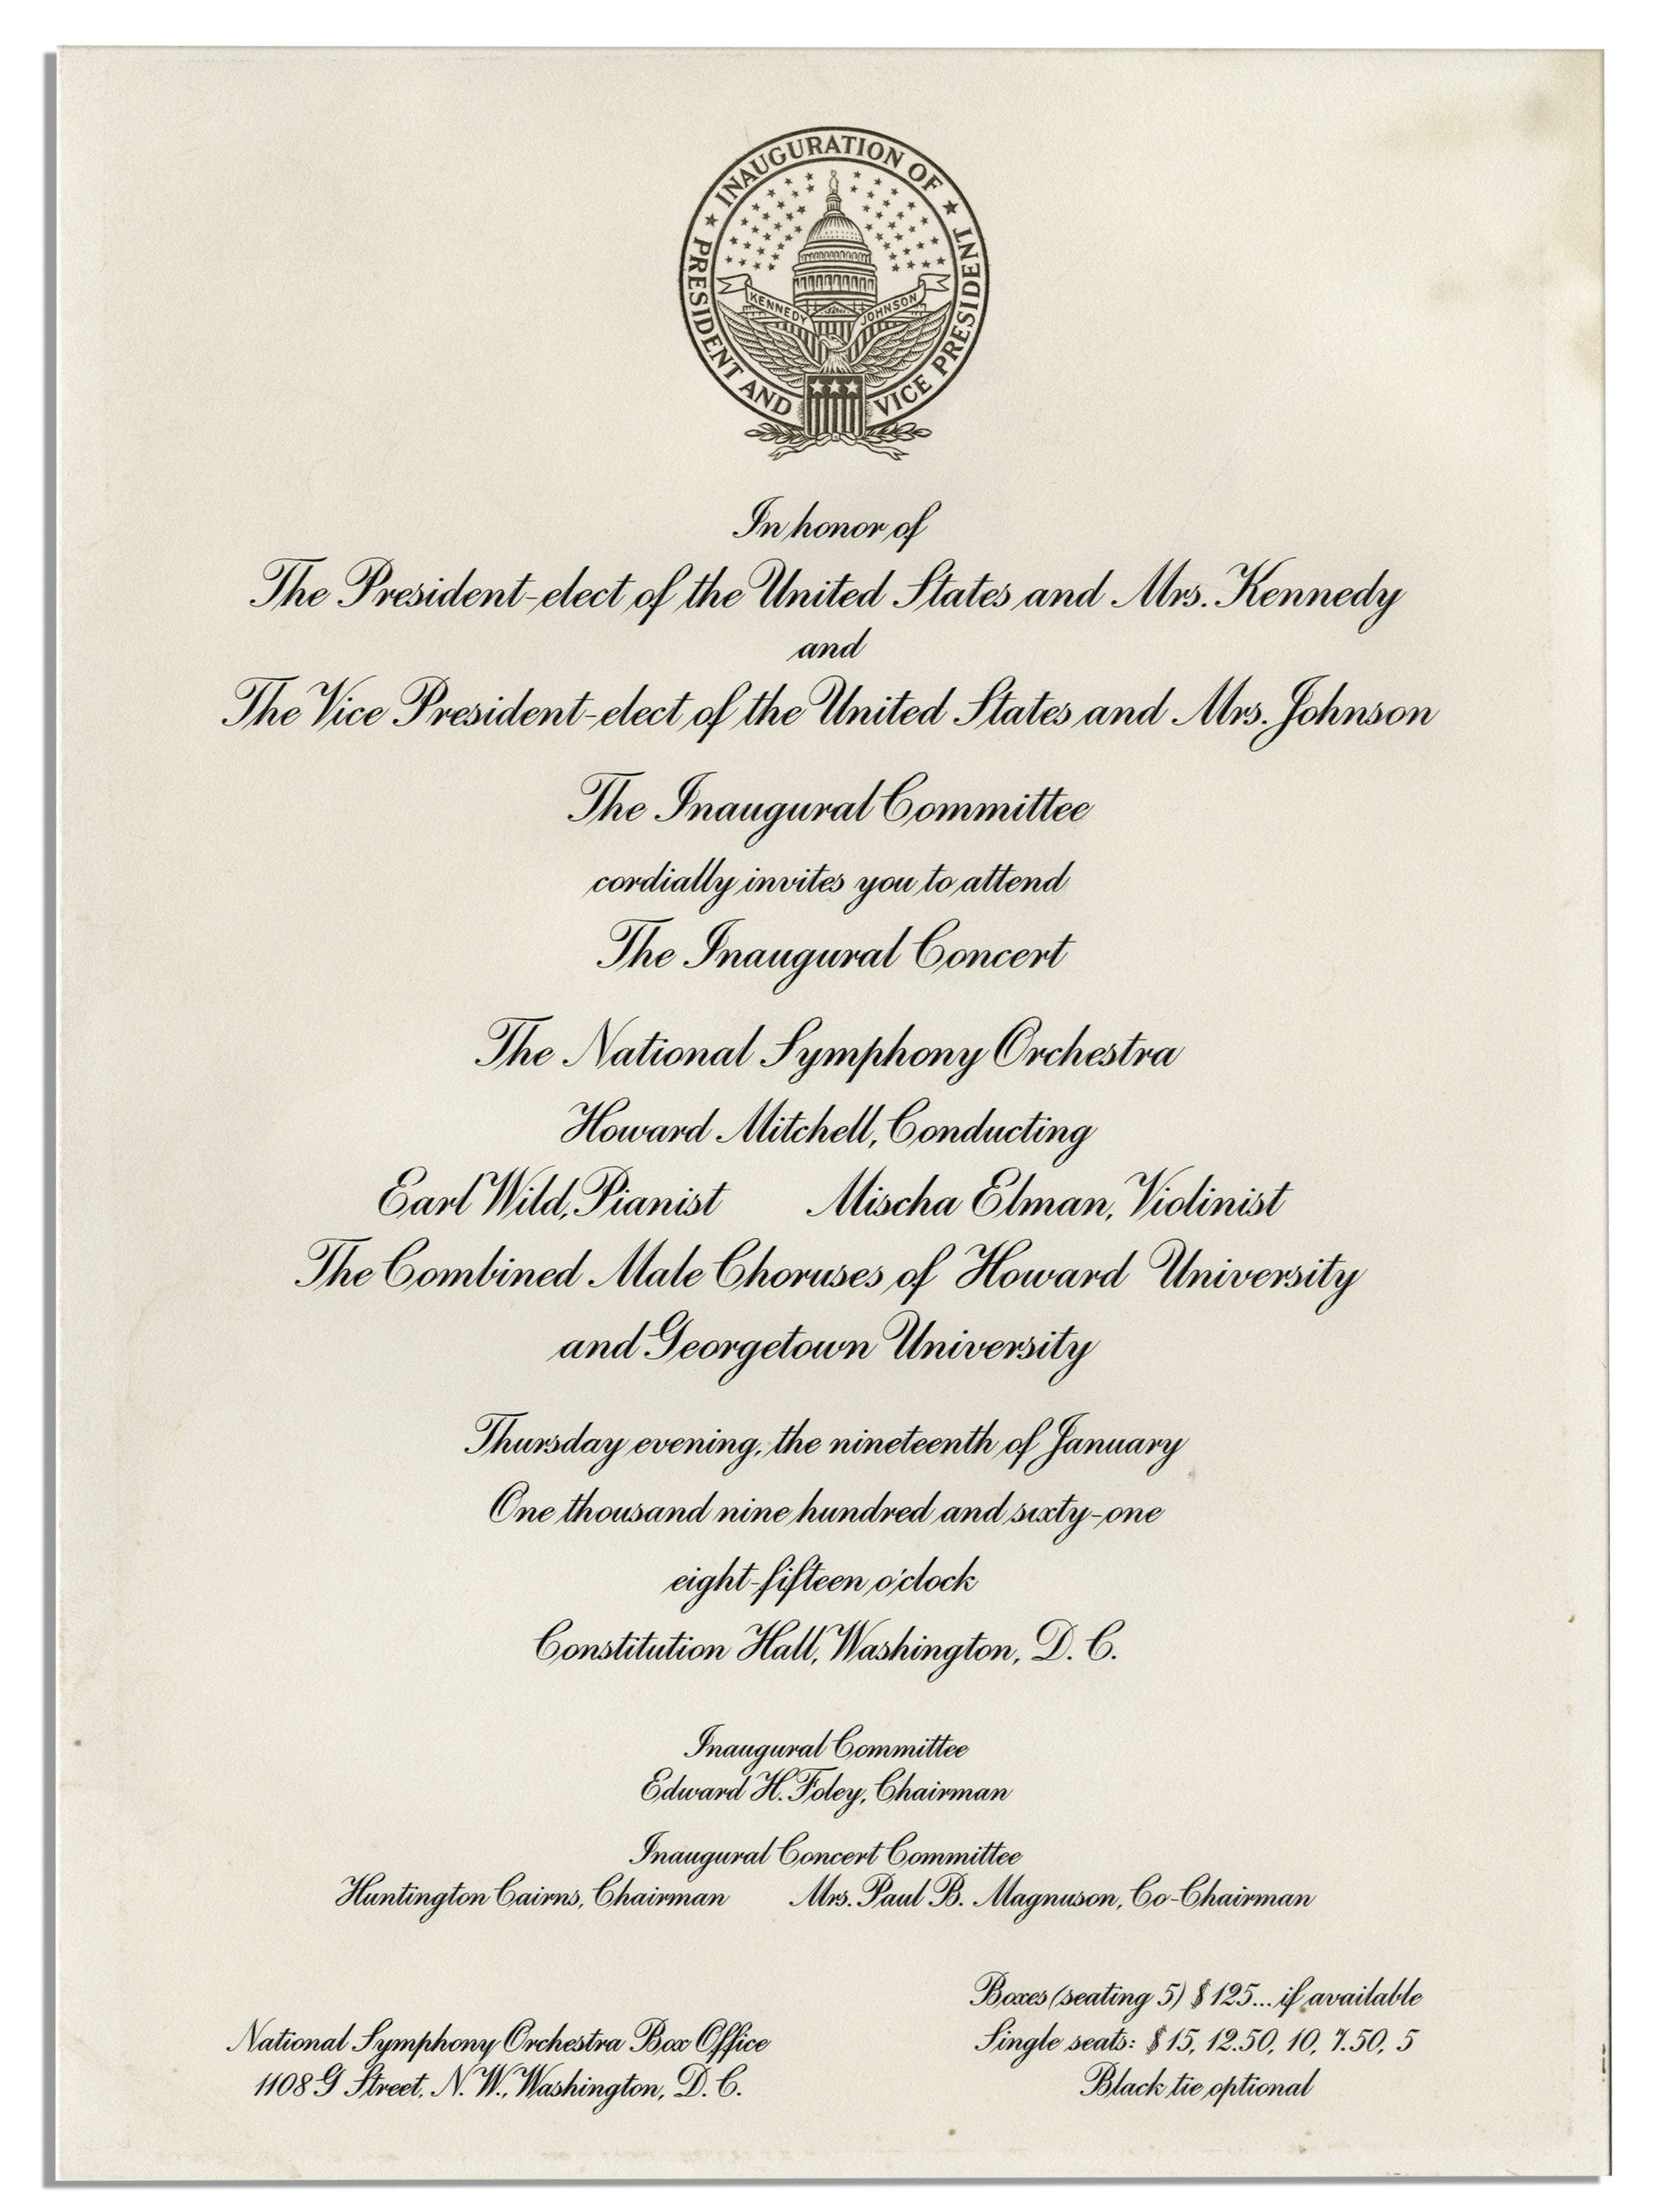 INAUGURATION OF
PRESIDENT AND VICE PRESIDENT
KENNEDY JOHNSON
In honor of
The President-elect of the United States and Mrs. Kennedy
and
The Vice President-elect of the United States and Mrs. Johnson
The Inaugural Committee
cordially invites you to attend
The Inaugural Concert
The National Symphony Orchestra
Howard Mitchell, Conducting
Earl Wild, Pianist Mischa Elman, Violinist
The Combined Male Choruses of Howard University
and Georgetown University
Thursday evening, the nineteenth of January
One thousand nine hundred and sixty-one
eight-fifteen o'clock
Constitution Hall, Washington, D. C.
Inaugural Committee
Edward H. Foley, Chairman
Inaugural Concert Committee
Huntington Cairns, Chairman Mrs. Paul B. Magnuson, Co-Chairman
National Symphony Orchestra Box Office
1108 G Street, N. W., Washington, D. C.
Boxes (seating 5) $125... if available
Single seats: $15, 12.50, 10, 7.50, 5
Black tie optional